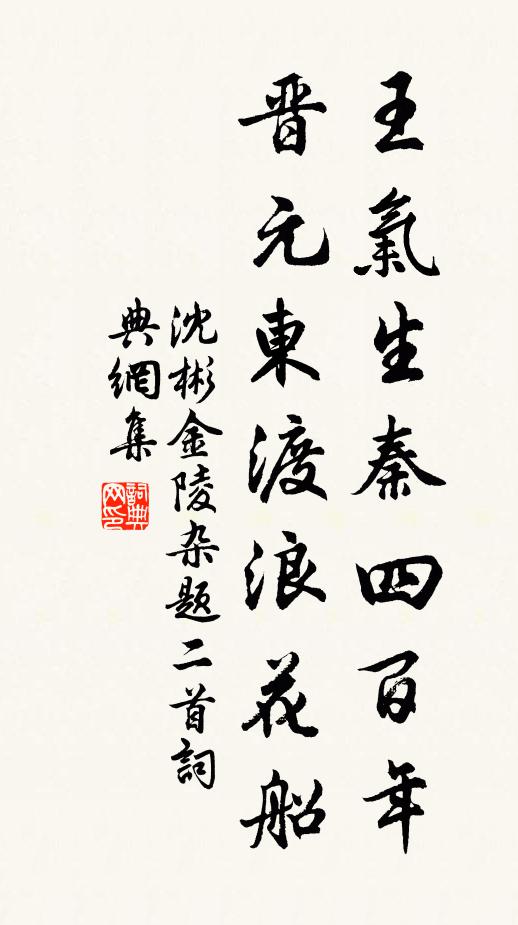 王氣生秦四百年
晋元東渡浪花船
沈彬金陵杂题二首詞
典網集
詞典
网印